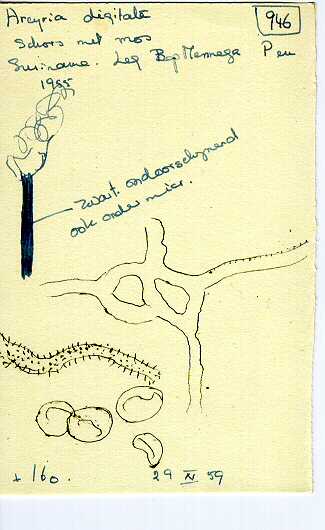 Arcyria digitata
946
Schors met mos
Suriname. Leg Bep Mennega
1955
zwart. ondoorschijnend
ook onder micr.
+ 160.
29 XI 59